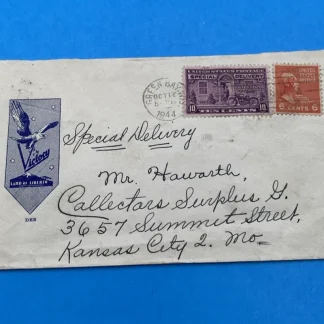 GREEN BAY
OCT
1944
UNITED STATES POSTAGE
SPECIAL DELIVERY
10 TEN CENTS 10
6 CENTS 6
Victory
LAND OF LIBERTY
Special Delivery
Mr. Haworth,
Callectors Surplus G.
3657 Summit Street,
Kansas City 2. Mo.